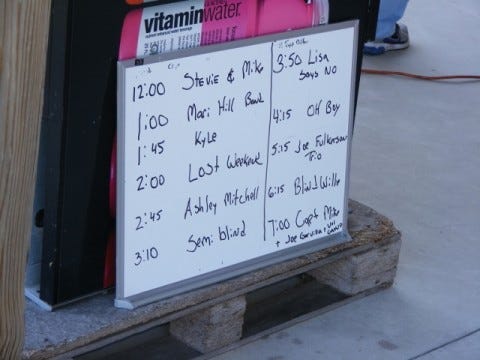 vitaminwater
12:00 Stevie & Mike
1:00 Mari Hill Band
1:45 Kyle
2:00 Lost Weekend
2:45 Ashley Mitchell
3:10 Semi blind
3:50 Lisa
Says No
4:15 Oh Boy
5:15 Joe Fulkerson
Trio
6:15 Blind Willy
7:00 Capt Mike
+ Joe